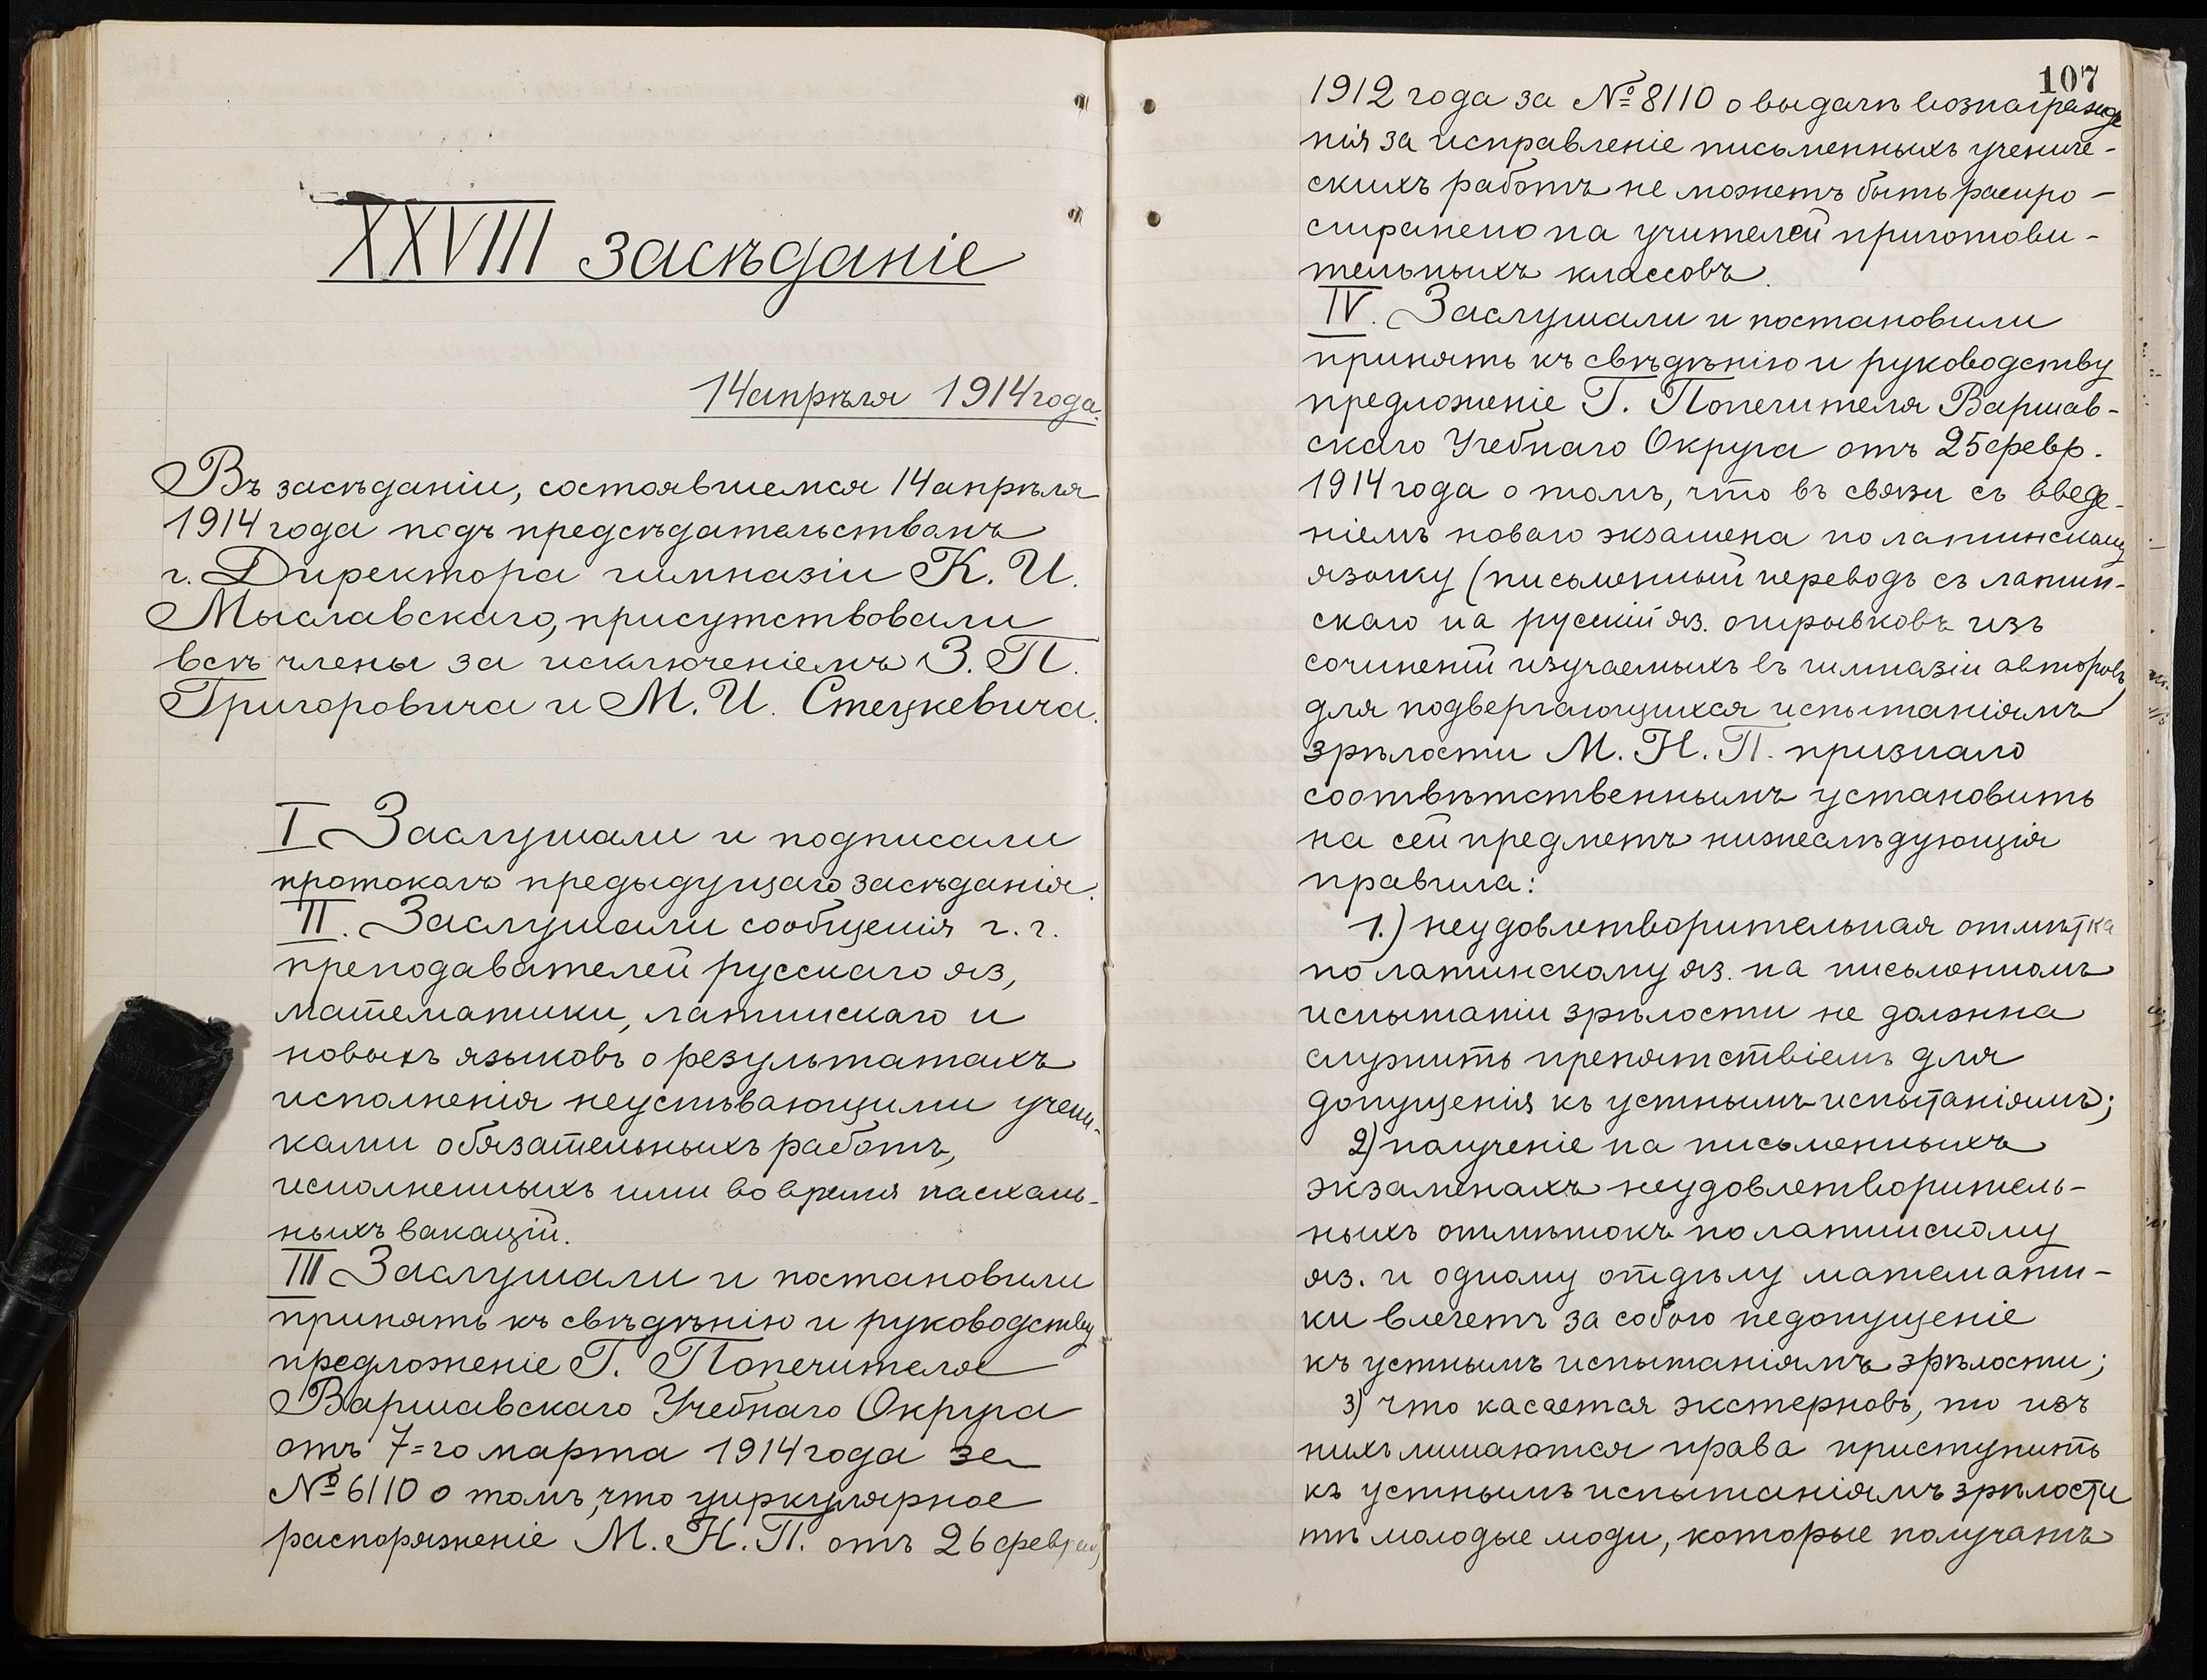 XXVIII засѣданіе
14 апрѣля 1914 года.
Въ засѣданіи, состоявшемся 14 апрѣля
1914 года подъ предсѣдательствомъ
г. Директора гимназіи К. И.
Мыславскаго, присутствовали
всѣ члены за исключеніемъ З. П.
Григоровича и М. И. Стецкевича.
I Заслушали и подписали
протоколъ предыдущаго засѣданія.
II. Заслушали сообщенія г. г.
преподавателей русскаго яз,
математики, латинскаго и
новыхъ языковъ о результатахъ
исполненія неуспѣвающими учени-
ками обязательныхъ работъ,
исполненныхъ ими во время пасхаль-
ныхъ вакацій.
III Заслушали и постановили
принять къ свѣдѣнію и руководству
предложеніе Г. Попечителя
Варшавскаго Учебнаго Округа
отъ 7=го марта 1914 года за
№ 6110 о томъ, что циркулярное
распоряженіе М. Н. П. отъ 26 февраля
107
1912 года за № 8110 о выдачѣ вознагражде
нія за исправленіе письменныхъ учениче-
скихъ работъ не можетъ быть распро-
странено на учителей приготови-
тельныхъ классовъ.
IV. Заслушали и постановили
принять къ свѣдѣнію и руководству
предложеніе Г. Попечителя Варшав-
скаго Учебнаго Округа отъ 25 февр.
1914 года о томъ, что въ связи съ введе-
ніемъ новаго экзамена по латинскому
языку (письменный переводъ съ латин-
скаго на русскій яз. отрывковъ изъ
сочиненій изучаемыхъ въ гимназіи авторовъ)
для подвергающихся испытаніямъ
зрѣлости М. Н. П. признало
соотвѣтственнымъ установить
на сей предметъ нижеслѣдующія
правила:
1.) неудовлетворительная отмѣтка
по латинскому яз. на письменномъ
испытаніи зрѣлости не должна
служить препятствіемъ для
допущенія къ устнымъ испытаніямъ;
2) полученіе на письменныхъ
экзаменахъ неудовлетворитель-
ныхъ отмѣтокъ по латинскому
яз. и одному отдѣлу математи-
ки влечетъ за собою недопущеніе
къ устнымъ испытаніямъ зрѣлости;
3) что касается экстерновъ, то изъ
нихъ лишаются права приступить
къ устнымъ испытаніямъ зрѣлости
тѣ молодые люди, которые получатъ